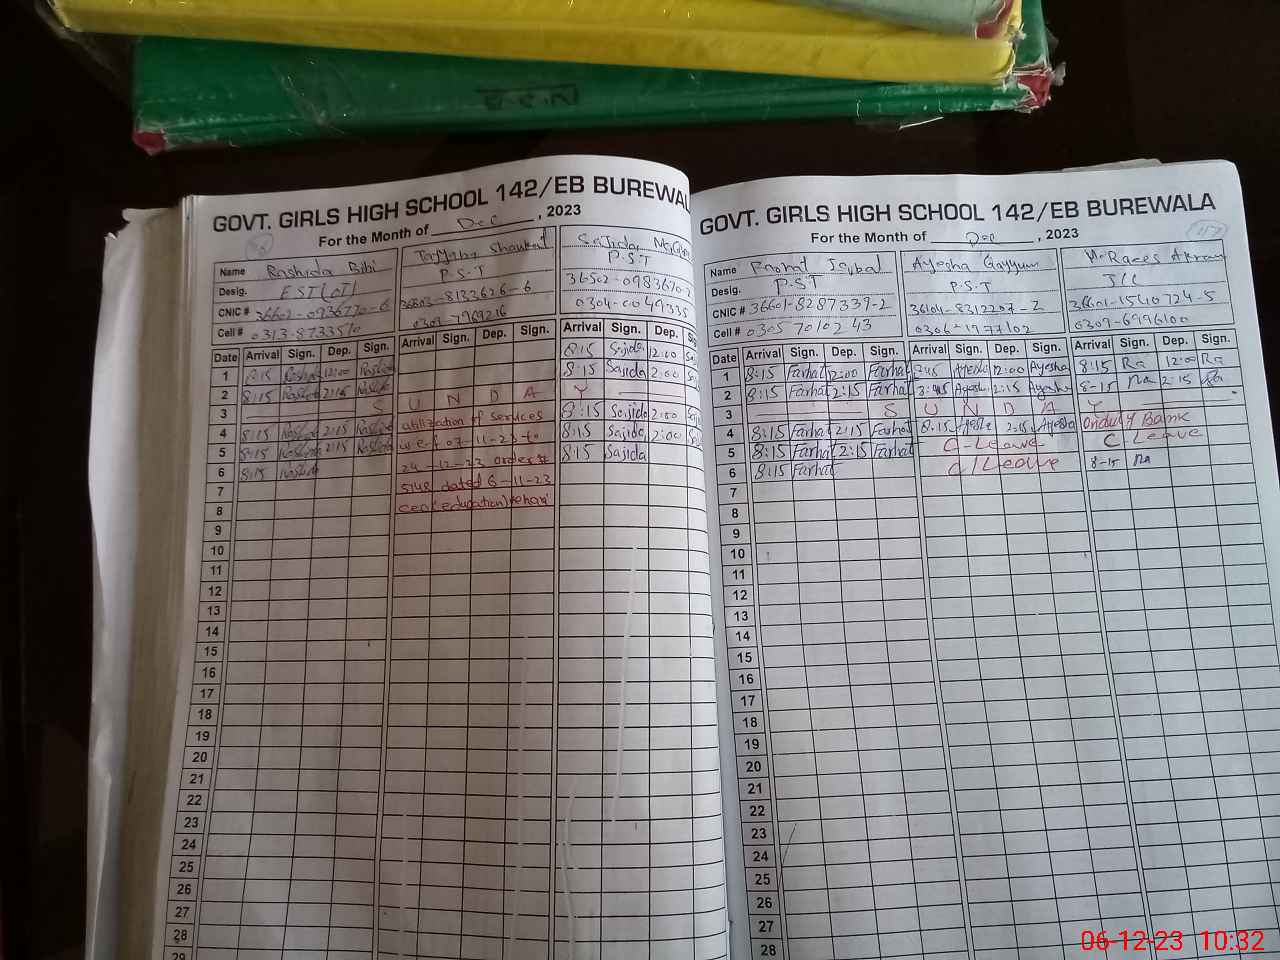 GOVT. GIRLS HIGH SCHOOL 142/EB BUREWAL
For the Month of Dec , 2023
Name Rashida Bibi
Desig. EST(OT)
CNIC # 36602-0936770-6
Cell # 0313-8733510
Tayyba Shaukat
P.S.T
36603-8133626-6
0309-7969216
Sajida
P.S.T
36502-0983670
0304-0049335
Date Arrival Sign. Dep. Sign. Arrival Sign. Dep. Sign. Arrival Sign. Dep. Sign.
1 8:15 Rashida 12:00 Rashida 8:15 Sajida 12:00
2 8:15 Rashida 2:15 Rashida 8:15 Sajida 2:00
3 S U N D A Y
4 8:15 Rashida 2:15 Rashida utilization of services 8:15 Sajida 2:00
5 8:15 Rashida 2:15 Rashida w.e.f 07-11-23 to 8:15 Sajida 2:00
6 8:15 Rashida 24-12-23 order # 8:15 Sajida
7 5148 dated 6-11-23
8 ceo (education) vehari
9
10
11
12
13
14
15
16
17
18
19
20
21
22
23
24
25
26
27
28
29
GOVT. GIRLS HIGH SCHOOL 142/EB BUREWALA
For the Month of Dec , 2023
Name Farhat Iqbal
Desig. PST
CNIC # 36601-8287339-2
Cell # 0305 7010243
Ayesha Qayyum
P.S.T
36104-8312207-2
0306-1977102
M. Raees Akram
J/C
36601-1540724-5
0309-6996100
Date Arrival Sign. Dep. Sign. Arrival Sign. Dep. Sign. Arrival Sign. Dep. Sign.
1 8:15 Farhat 12:00 Farhat 7:45 Ayesha 12:00 Ayesha 8:15 Ra 12:00 Ra
2 8:15 Farhat 2:15 Farhat 8:45 Ayesha 2:15 Ayesha 8-15 Ra 2:15 Ra
3 S U N D A Y
4 8:15 Farhat 2:15 Farhat 8:15 Ayesha 2:15 Ayesha Onduty Bank
5 8:15 Farhat 2:15 Farhat C-Leave C Leave
6 8:15 Farhat C/Leave 8-15 Ra
7
8
9
10
11
12
13
14
15
16
17
18
19
20
21
22
23
24
25
26
27
28
06-12-23 10:32